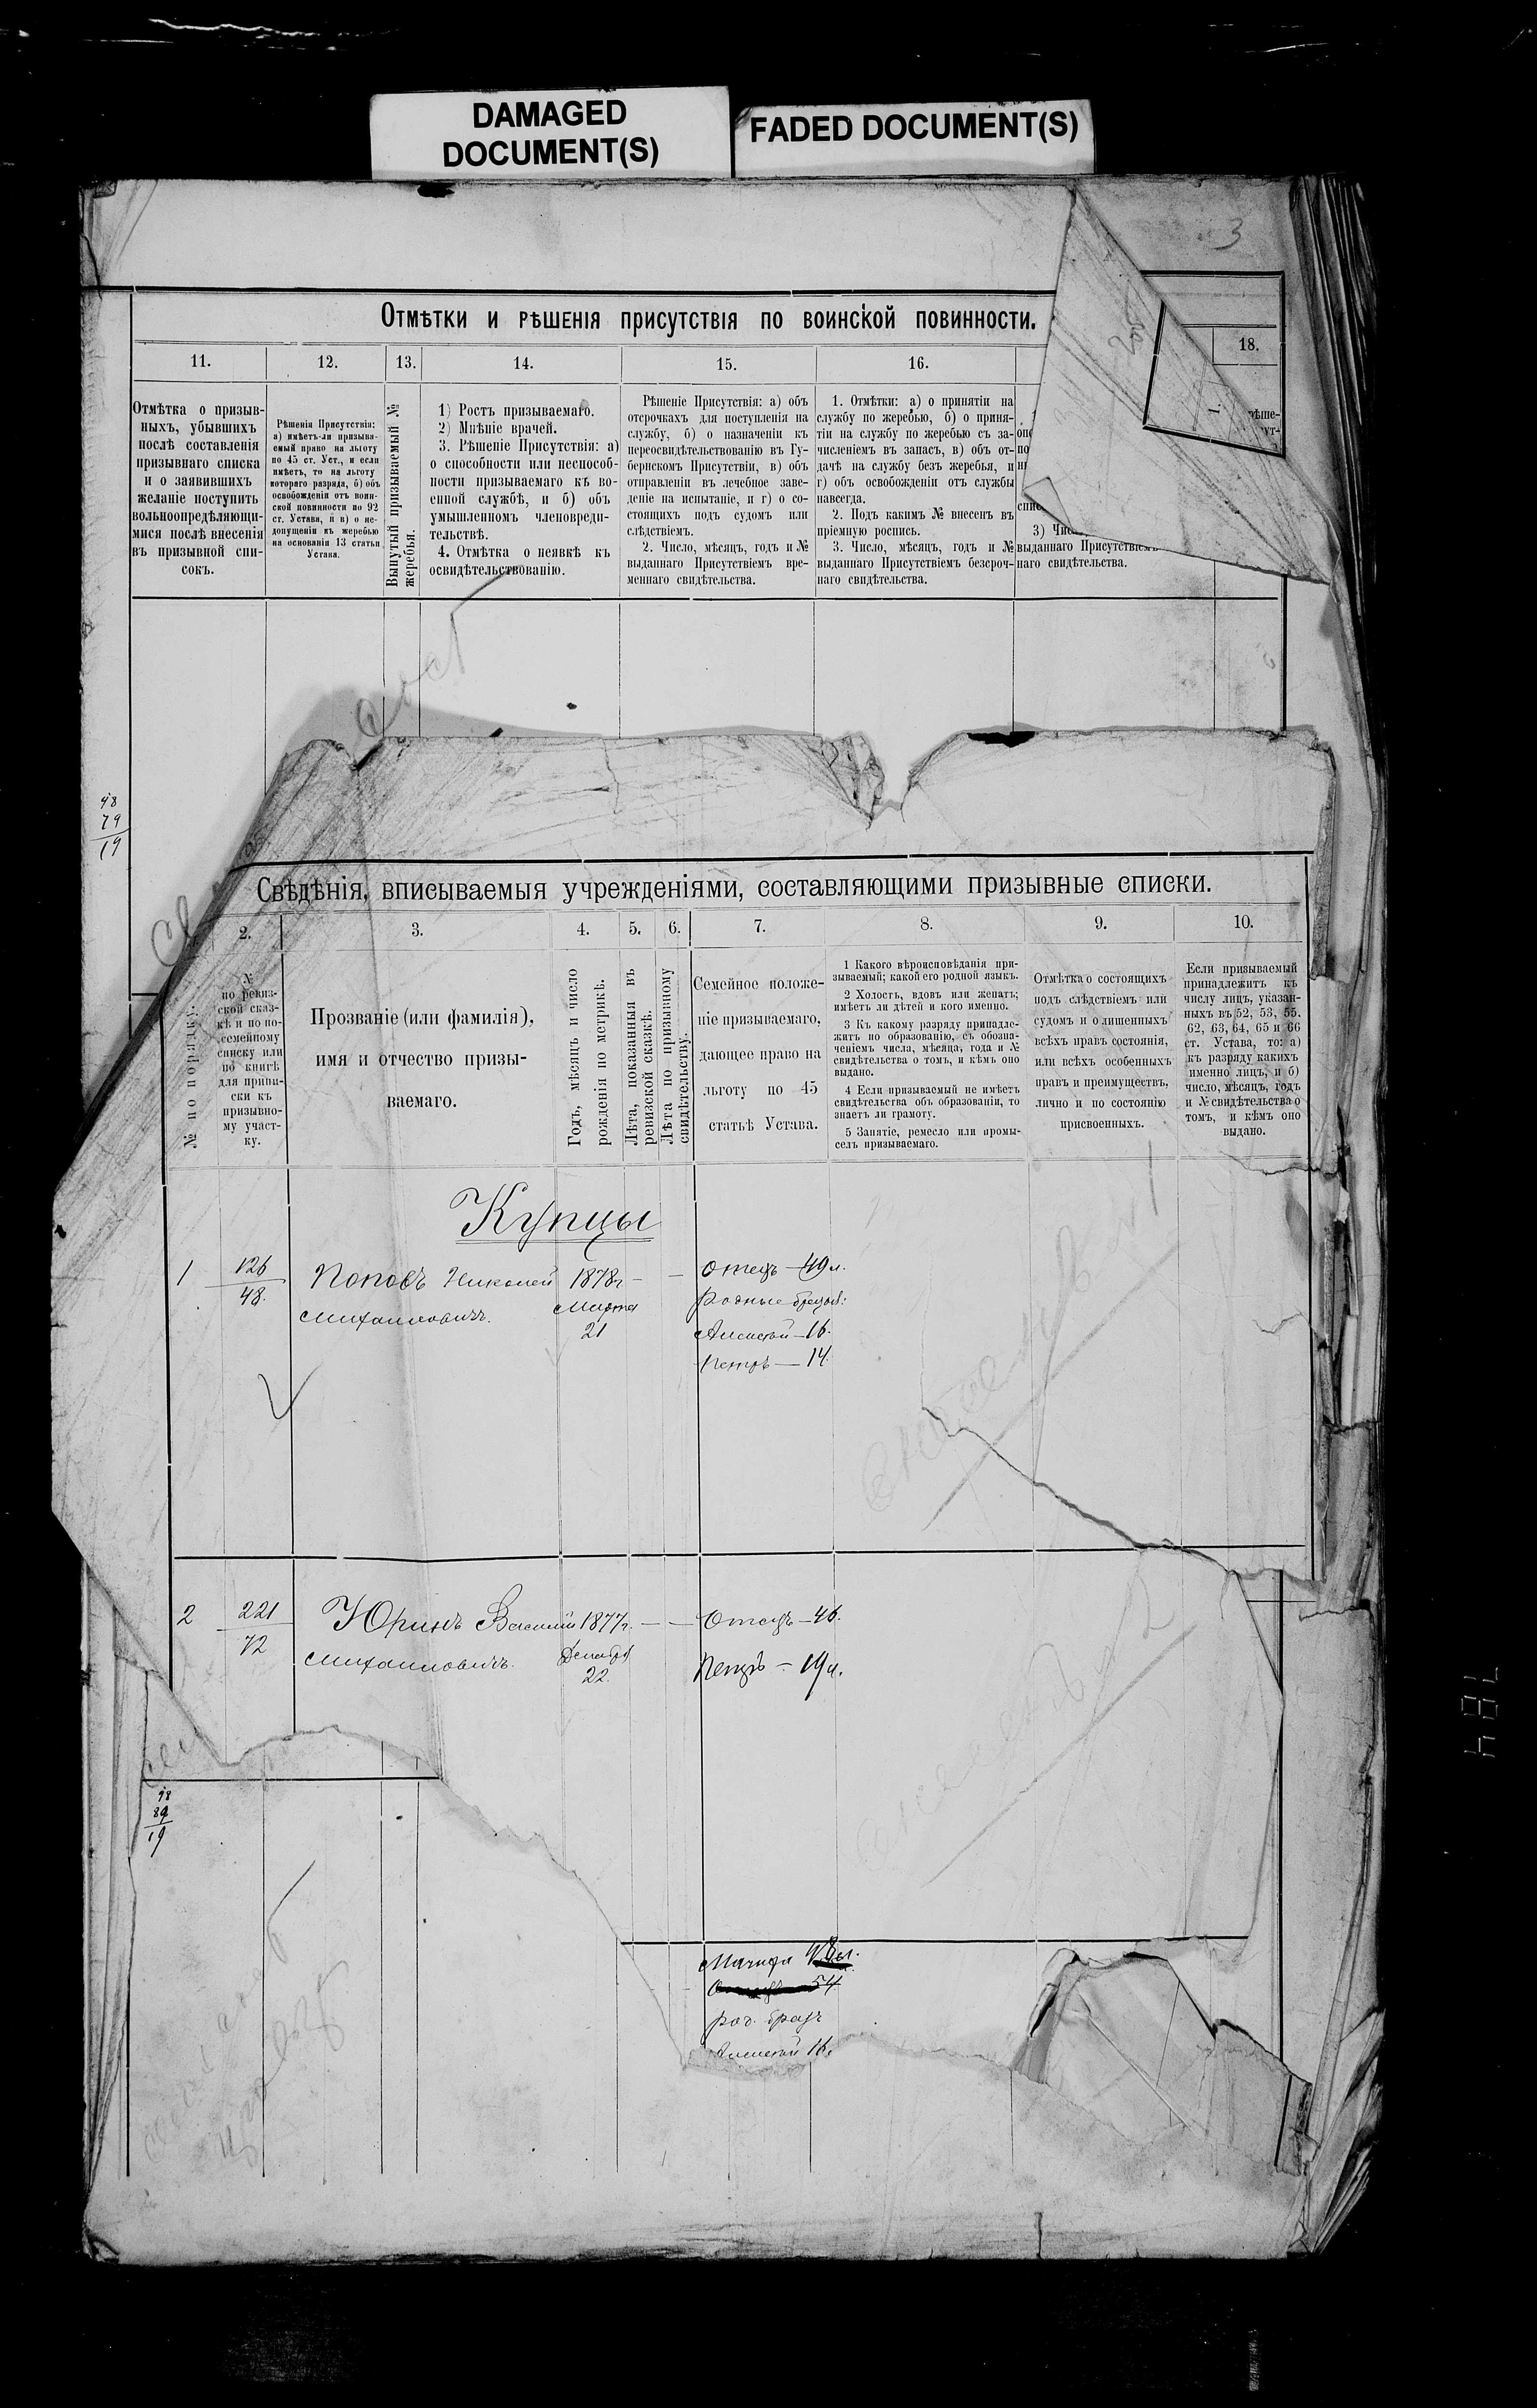 DAMAGED
DOCUMENT(S)
FADED DOCUMENT(S)
3
Отмѣтки и рѣшенія присутствія по воинской повинности.
11. 12. 13. 14. 15. 16. 18.
Отмѣтка о призыв-
ныхъ, убывшихъ
послѣ составленія
призывнаго списка
и о заявившихъ
желаніе поступить
вольноопредѣляющи-
мися послѣ внесенія
въ призывной спи-
сокъ.
Рѣшенія Присутствія:
а) имѣетъ-ли призыва-
емый право на льготу
по 45 ст. Уст., и если
имѣетъ, то на льготу
котораго разряда, б) объ
освобожденіи отъ воин-
ской повинности по 92
ст. Устава, и в) о не-
допущеніи къ жеребью
на основаніи 13 статьи
Устава.
Вынутый призываемый №
жеребья.
1) Ростъ призываемаго.
2) Мнѣніе врачей.
3. Рѣшеніе Присутствія: а)
о способности или неспособ-
ности призываемаго къ во-
енной службѣ, и б) объ
умышленномъ членовреди-
тельствѣ.
4. Отмѣтка о неявкѣ къ
освидѣтельствованію.
Рѣшеніе Присутствія: а) объ
отсрочкахъ для поступленія на
службу, б) о назначеніи къ
переосвидѣтельствованію въ Гу-
бернскомъ Присутствіи, в) объ
отправленіи въ лечебное заве-
деніе на испытаніе, и г) о со-
стоящихъ подъ судомъ или
слѣдствіемъ.
2. Число, мѣсяцъ, годъ и №
выданнаго Присутствіемъ вре-
меннаго свидѣтельства.
1. Отмѣтки: а) о принятіи на
службу по жеребью, б) о приня-
тіи на службу по жеребью съ за-
численіемъ въ запасъ, в) объ от-
дачѣ на службу безъ жеребья, и
г) объ освобожденіи отъ службы
навсегда.
2. Подъ какимъ № внесенъ въ
пріемную роспись.
3. Число, мѣсяцъ, годъ и №
выданнаго Присутствіемъ безсроч-
наго свидѣтельства.
3)
выданнаго Присутствіемъ
наго свидѣтельства.
98
79
19
Свѣдѣнія, вписываемыя учрежденіями, составляющими призывные списки.
2. 3. 4. 5. 6. 7. 8. 9. 10.
№ по порядку.
№
по ревиз-
ской сказ-
кѣ и по по-
семейному
списку или
по книгѣ
для припи-
ски къ
призывно-
му участ-
ку.
Прозваніе (или фамилія),
имя и отчество призы-
ваемаго.
Годъ, мѣсяцъ и число
рожденія по метрикѣ.
Лѣта, показанныя въ
ревизской сказкѣ.
Лѣта по призывному
свидѣтельству.
Семейное положе-
ніе призываемаго,
дающее право на
льготу по 45
статьѣ Устава.
1 Какого вѣроисповѣданія при-
зываемый; какой его родной языкъ.
2 Холостъ, вдовъ или женатъ;
имѣетъ ли дѣтей и кого именно.
3 Къ какому разряду принадле-
житъ по образованію, съ обозна-
ченіемъ числа, мѣсяца, года и №
свидѣтельства о томъ, и кѣмъ оно
выдано.
4 Если призываемый не имѣетъ
свидѣтельства объ образованіи, то
знаетъ ли грамоту.
5 Занятіе, ремесло или промы-
селъ призываемаго.
Отмѣтка о состоящихъ
подъ слѣдствіемъ или
судомъ и о лишенныхъ
всѣхъ правъ состоянія,
или всѣхъ особенныхъ
правъ и преимуществъ,
лично и по состоянію
присвоенныхъ.
Если призываемый
принадлежитъ къ
числу лицъ, указан-
ныхъ въ 52, 53, 55,
62, 63, 64, 65 и 66
ст. Устава, то: а)
къ разряду какихъ
именно лицъ, и б)
число, мѣсяцъ, годъ
и № свидѣтельства о
томъ, и кѣмъ оно
выдано.
Купцы
1 126 Поповъ Николай 1878г — — Отецъ — 49 л.
48. Михаиловичъ. Марта Родные братья:
21 Алексѣй — 16.
Петръ — 14.
2 221 Юринъ Василій 1877г. — — Отецъ — 46.
72 Михаиловичъ. Декабря
22. Петръ — 19 л.
98
89
19
Мачиха
54
род. братъ
Алексѣй 16.
784